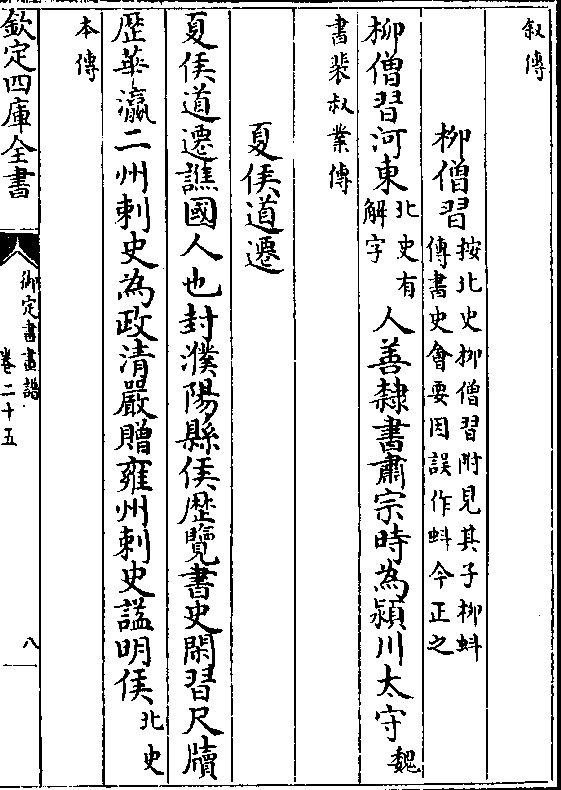 叙傳
柳僧習按北史柳僧習附見其子柳蚪
傳書史會要因誤作蚪今正之
柳僧習河東北史有
解字人善隸書肅宗時為潁川太守魏
書裴叔業傳
夏侯道遷
夏侯道遷譙國人也封濮陽縣侯歴覽書史閑習尺牘
歴華瀛二州刺史為政清嚴贈雍州刺史諡明侯北史
本傳
欽定四庫全書
御定書畫譜
卷二十五
八